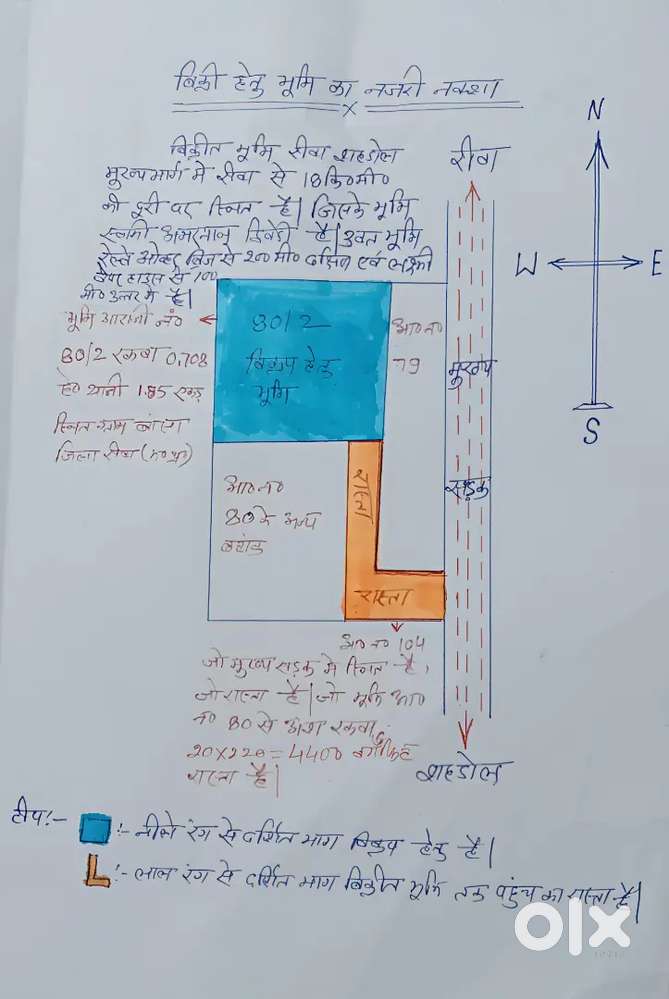 बिक्री हेतु भूमि का नजरी नक्शा
x
N
W
E
S
रीवा
बिक्रीत भूमि रीवा शहडोल
मुख्यमार्ग में रीवा से 18 कि०मी०
की दूरी पर स्थित है| जिसके भूमि
स्वामी अमरनाथ द्विवेदी है| उक्त भूमि
रेल्वे ओव्हर ब्रिज से 200 मी० दक्षिण एवं लक्ष्मी
हाउस से 100
मी० उत्तर में है|
भूमि आराजी नं०
80/2 रकबा 0.708
हे० यानी 1.85 एकड़
स्थित ग्राम
जिला रीवा (म०प्र०)
80/2
विक्रय हेतु
भूमि
आ०नं०
79
मुख्य
सड़क
आ०नं०
80 के अन्य
बटांक
रास्ता
रास्ता
आ०नं० 104
जो मुख्य सड़क में स्थित है,
जो रास्ता है| जो भूमि आ०
नं० 80 से अंश रकबा
20x220=4400 वर्गफिट
रास्ता है|
शहडोल
टीप:-
:- नीले रंग से दर्शित भाग विक्रय हेतु है|
:- लाल रंग से दर्शित भाग बिक्रीत भूमि तक पहुंच का रास्ता है|
olx